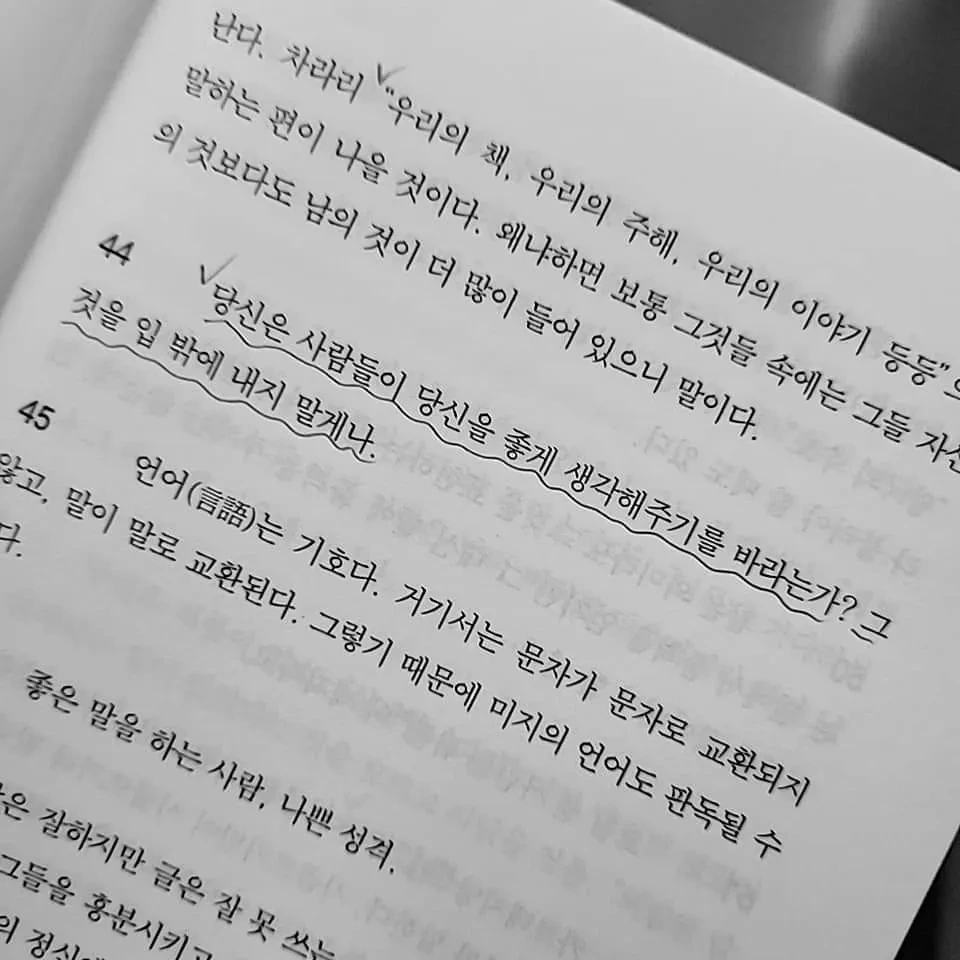 난다. 차라리 "우리의 책, 우리의 주해, 우리의 이야기 등등"으
말하는 편이 나을 것이다. 왜냐하면 보통 그것들 속에는 그들 자신
의 것보다도 남의 것이 더 많이 들어 있으니 말이다.
44
당신은 사람들이 당신을 좋게 생각해주기를 바라는가? 그
것을 입 밖에 내지 말게나.
45
언어(言語)는 기호다. 거기서는 문자가 문자로 교환되지
않고, 말이 말로 교환된다. 그렇기 때문에 미지의 언어도 판독될 수
다.
좋은 말을 하는 사람, 나쁜 성격.
은 잘하지만 글은 잘 못 쓰는
그들을 흥분시키고
의